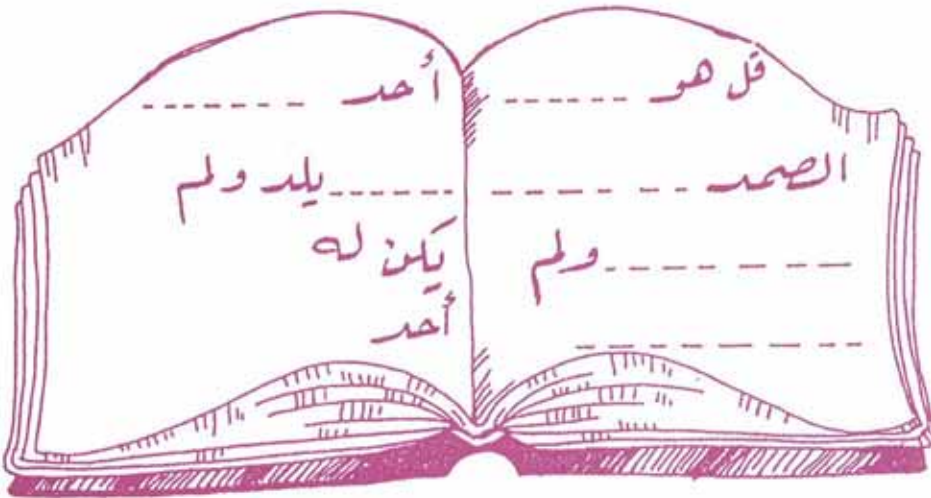 قل هو ------ أحد ------
الصمد ------ ------ يلد ولم
------ ولم يكن له
------ أحد